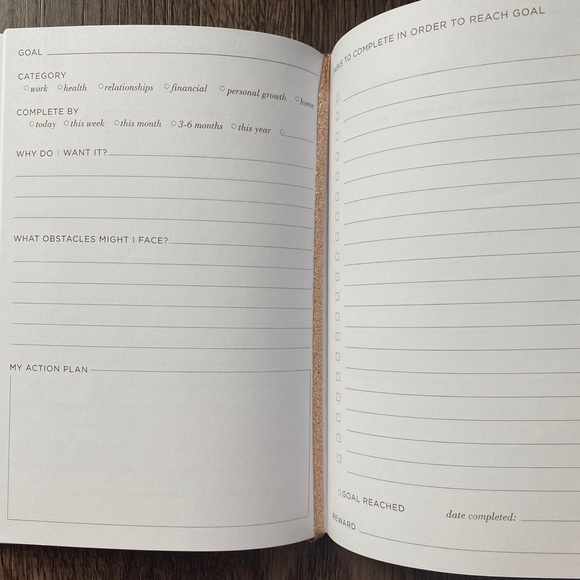 GOAL
CATEGORY
work health relationships financial personal growth home
COMPLETE BY
today this week this month 3-6 months this year
WHY DO I WANT IT?
WHAT OBSTACLES MIGHT I FACE?
MY ACTION PLAN
TASKS TO COMPLETE IN ORDER TO REACH GOAL
GOAL REACHED
date completed:
REWARD